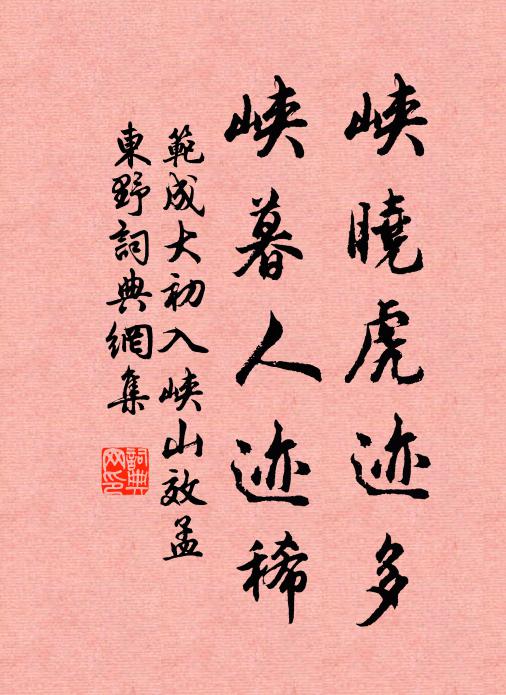 峡曉虎迹多
峡暮人迹稀
範成大初入峡山效孟
東野詞典網集
詞典網印